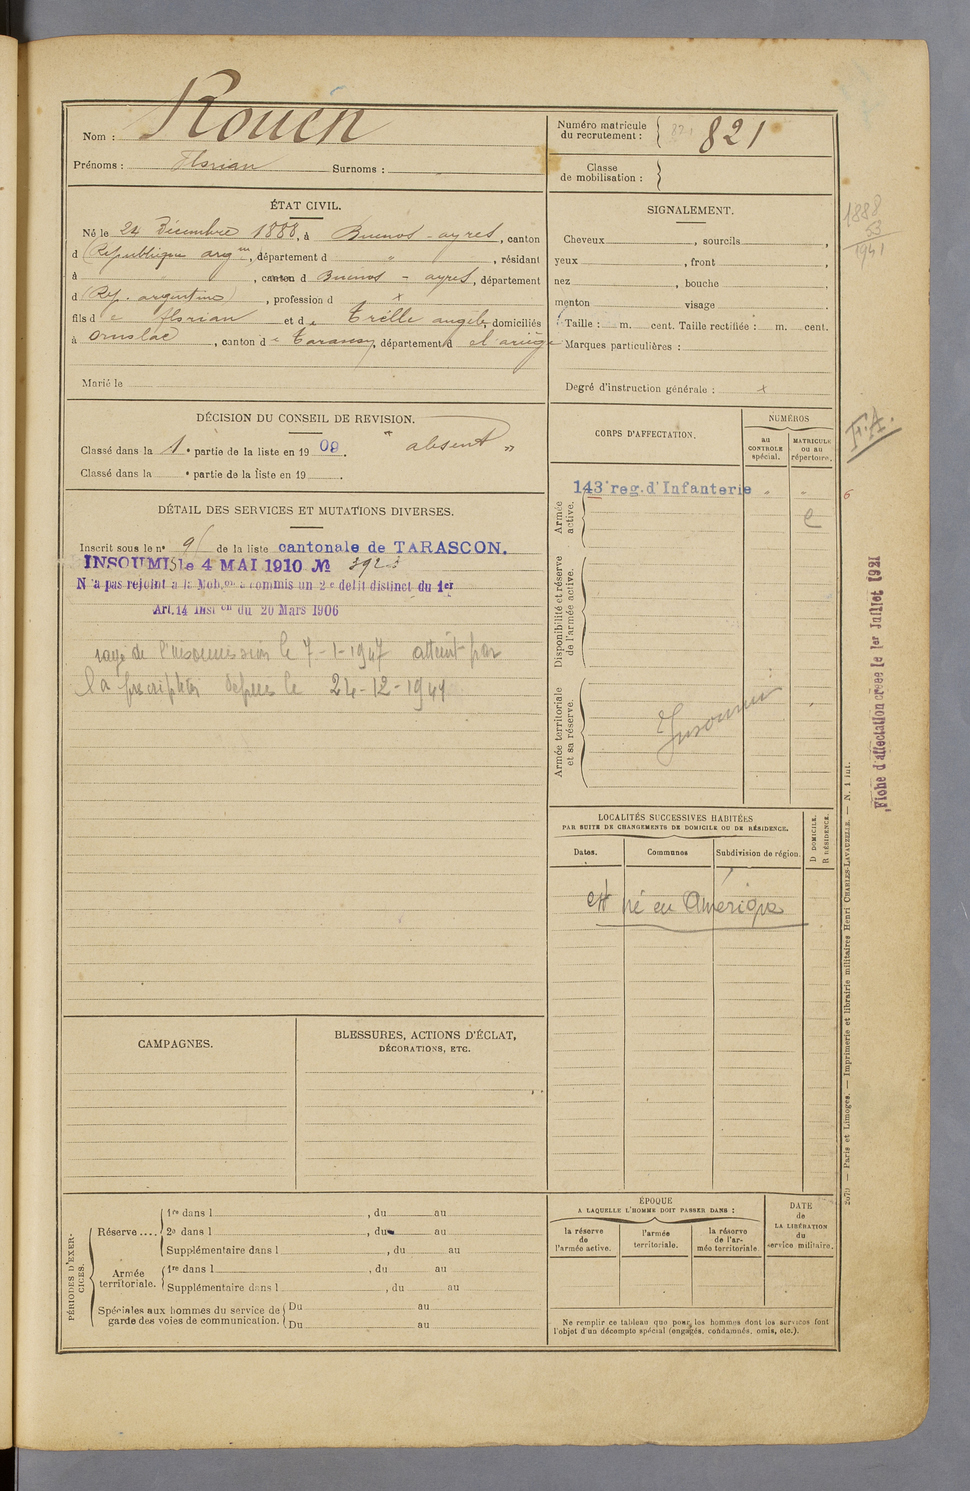 Nom : Rouén
Prénoms : Florian Surnoms :
Numéro matricule du recrutement : 821 821
Classe de mobilisation :
ÉTAT CIVIL.
Né le 24 Décembre 1888, à Buenos-ayres, canton
d (République argne, département d " , résidant
à , canton d Buenos-ayres, département
d (Rép. argentine) , profession d x
fils de Florian et de Trélle angèle, domiciliés
à Ornolac , canton de Tarascon, département d el'ariège
Marié le
SIGNALEMENT.
Cheveux , sourcils ,
yeux , front ,
nez , bouche ,
menton visage
Taille : m. cent. Taille rectifiée : m. cent.
Marques particulières :
Degré d'instruction générale : x
1888
53
1941
DÉCISION DU CONSEIL DE REVISION.
Classé dans la 1e partie de la liste en 1909. " absent "
Classé dans la e partie de la liste en 19 .
DÉTAIL DES SERVICES ET MUTATIONS DIVERSES.
Inscrit sous le no 96 de la liste cantonale de TARASCON.
INSOUMIS le 4 MAI 1910 No 3923
N'a pas rejoint à la Mobon a commis un 2e délit distinct du 1er
Art. 14 Inston du 20 Mars 1906
rayé de l'insoumission le 7-1-1947 atteint par
la prescription depuis le 24-12-1941
CORPS D'AFFECTATION.
NUMÉROS
au CONTROLE spécial.
MATRICULE ou au répertoire.
Armée active.
143e reg. d'Infanterie " "
e
Disponibilité et réserve de l'armée active.
Armée territoriale et sa réserve.
Insoumis
F.A.
6
Fiche d'affectation créée le 1er Juillet 1921
LOCALITÉS SUCCESSIVES HABITÉES
PAR SUITE DE CHANGEMENTS DE DOMICILE OU DE RÉSIDENCE.
Dates. Communes Subdivision de région.
D DOMICILE.
R RÉSIDENCE.
est né en Amérique
CAMPAGNES.
BLESSURES, ACTIONS D'ÉCLAT,
DÉCORATIONS, ETC.
PÉRIODES D'EXERCICES.
Réserve .... 1re dans l , du au
2e dans l , du au
Supplémentaire dans l , du au
Armée territoriale. 1re dans l , du au
Supplémentaire dans l , du au
Spéciales aux hommes du service de garde des voies de communication. Du au
Du au
ÉPOQUE
A LAQUELLE L'HOMME DOIT PASSER DANS :
la réserve de l'armée active.
l'armée territoriale.
la réserve de l'armée territoriale
DATE de LA LIBÉRATION du service militaire.
Ne remplir ce tableau que pour les hommes dont les services font
l'objet d'un décompte spécial (engagés, condamnés, omis, etc.).
Paris et Limoges. — Imprimerie et librairie militaires Henri CHARLES-LAVAUZELLE. — N. 1 int.